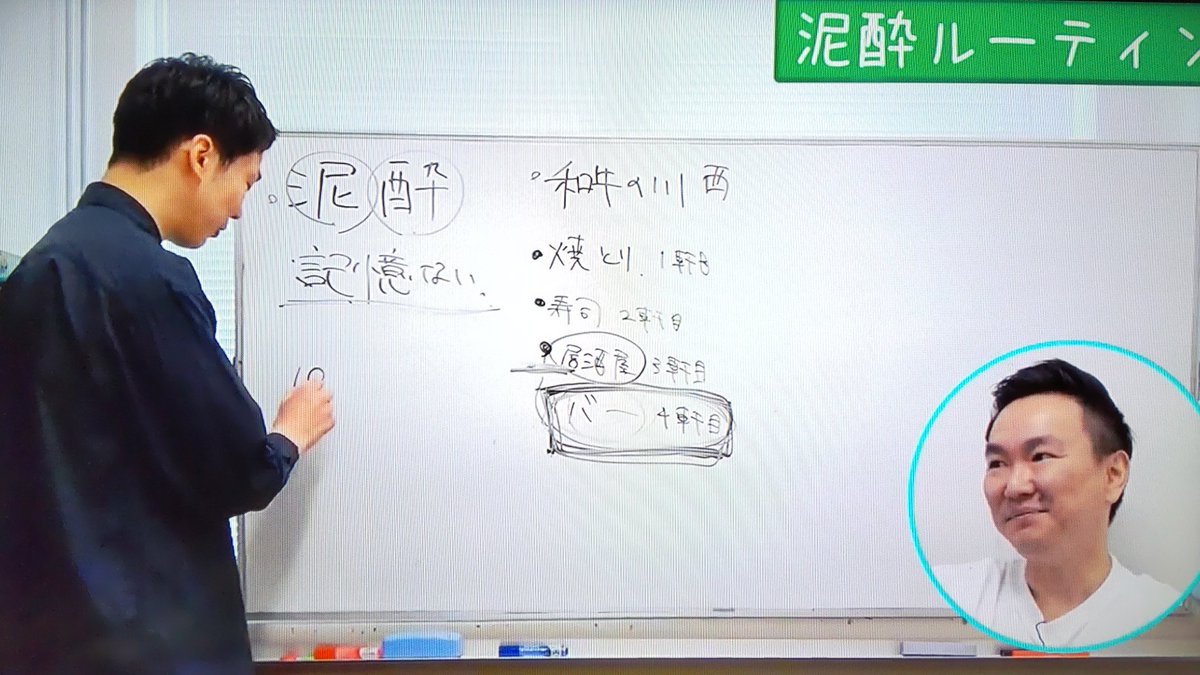 泥酔ルーティン
泥酔
記憶ない
・和牛の川西
・焼とり 1軒目
・寿司 2軒目
・居酒屋 3軒目
バー 4軒目
10